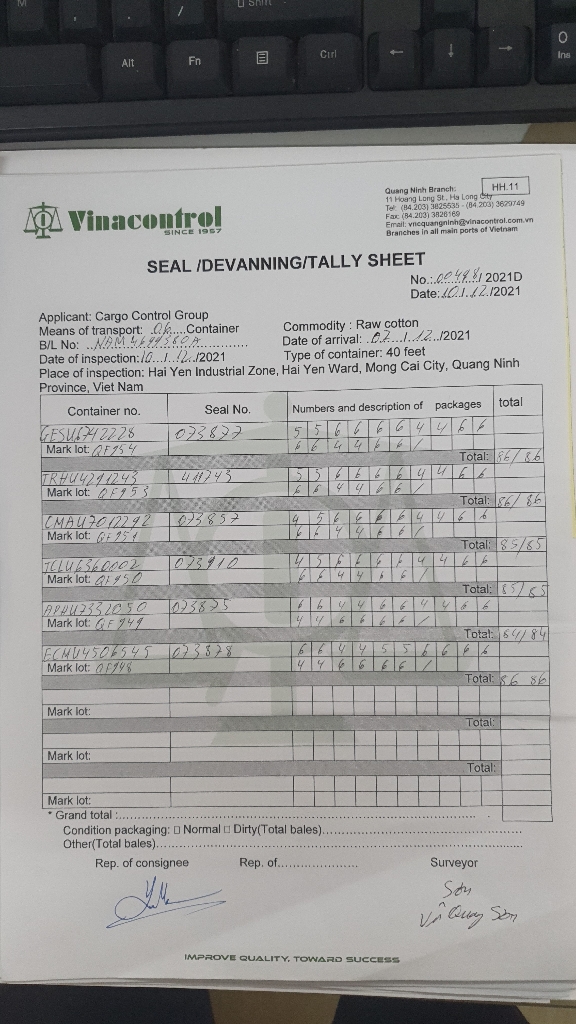 Alt
Fn
Ctrl
Ins
Quang Ninh Branch:
HH.11
11 Hoang Long St., Ha Long City
Tel: (84.203) 3825535 - (84.203) 3629749
Fax: (84.203) 3826169
Email: vncquangninh@vinacontrol.com.vn
Branches in all main ports of Vietnam
Vinacontrol
SINCE 1957
SEAL /DEVANNING/TALLY SHEET
No.: 00498/ 2021D
Date: 10/12/2021
Applicant: Cargo Control Group
Means of transport: 06 Container
Commodity : Raw cotton
B/L No:
Date of arrival: 07/12/2021
Date of inspection: 10/12/2021
Type of container: 40 feet
Place of inspection: Hai Yen Industrial Zone, Hai Yen Ward, Mong Cai City, Quang Ninh
Province, Viet Nam
Container no. Seal No. Numbers and description of packages total
GESU6742228 073877 5 5 6 6 6 6 4 4 6 6
Mark lot: QF954 6 6 4 4 6 6 /
Total: 86/86
TRHU4291243 411743 5 5 6 6 6 6 4 4 6 6
Mark lot: QF953 6 6 4 4 6 6 /
Total: 86/86
CMAU7012292 073857 4 5 6 6 6 6 4 4 6 6
Mark lot: QF951 6 6 4 4 6 6 /
Total: 85/85
TCLU6360002 073910 4 5 6 6 6 6 4 4 6 6
Mark lot: QF950 6 6 4 4 6 6 /
Total: 85/85
073875 6 6 4 4 6 6 4 4 6 6
Mark lot: QF949 4 4 6 6 6 6 /
Total: /84
073878 6 6 4 4 5 5 6 6 6 6
Mark lot: QF948 4 4 6 6 6 6 /
Total: 86 86
Mark lot:
Total:
Mark lot:
Total:
Mark lot:
* Grand total :
Condition packaging: □ Normal □ Dirty(Total bales)
Other(Total bales)
Rep. of consignee Rep. of Surveyor
Sơn
Vũ Quang Sơn
IMPROVE QUALITY, TOWARD SUCCESS